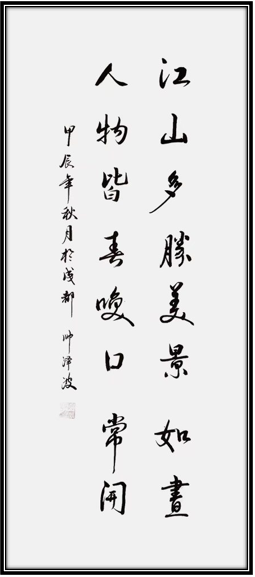 江山多勝美景 如畫
人物皆春咲口 常開
甲辰年秋月於成都 帅泽波